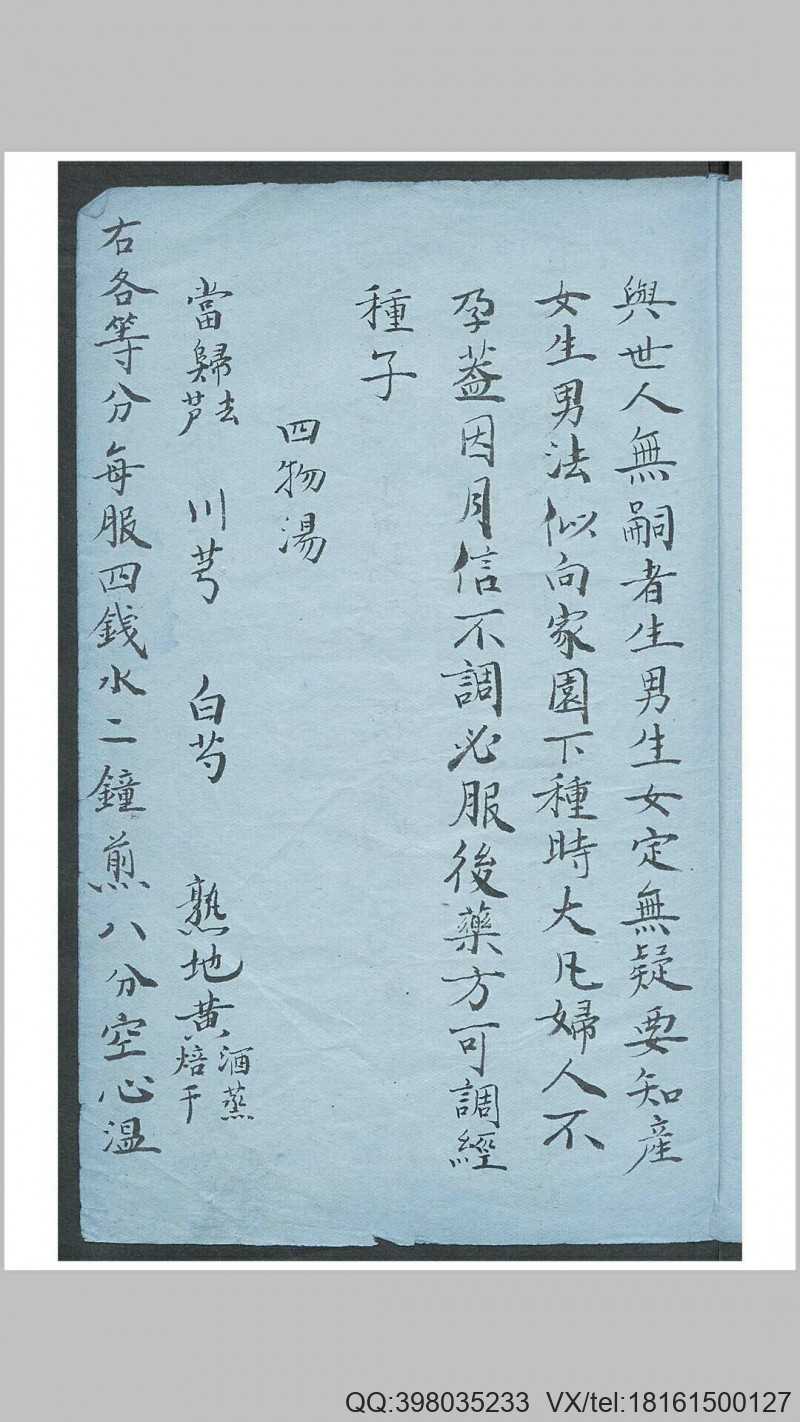 與世人無嗣者生男生女定無疑要知產
女生男法似向家園下種時大凡婦人不
孕蓋因月信不調必服後藥方可調經
種子
四物湯
當歸去芦 川芎 白芍 熟地黄酒蒸焙干
右各等分每服四錢水二鐘煎八分空心溫
QQ:398035233 VX/tel:18161500127